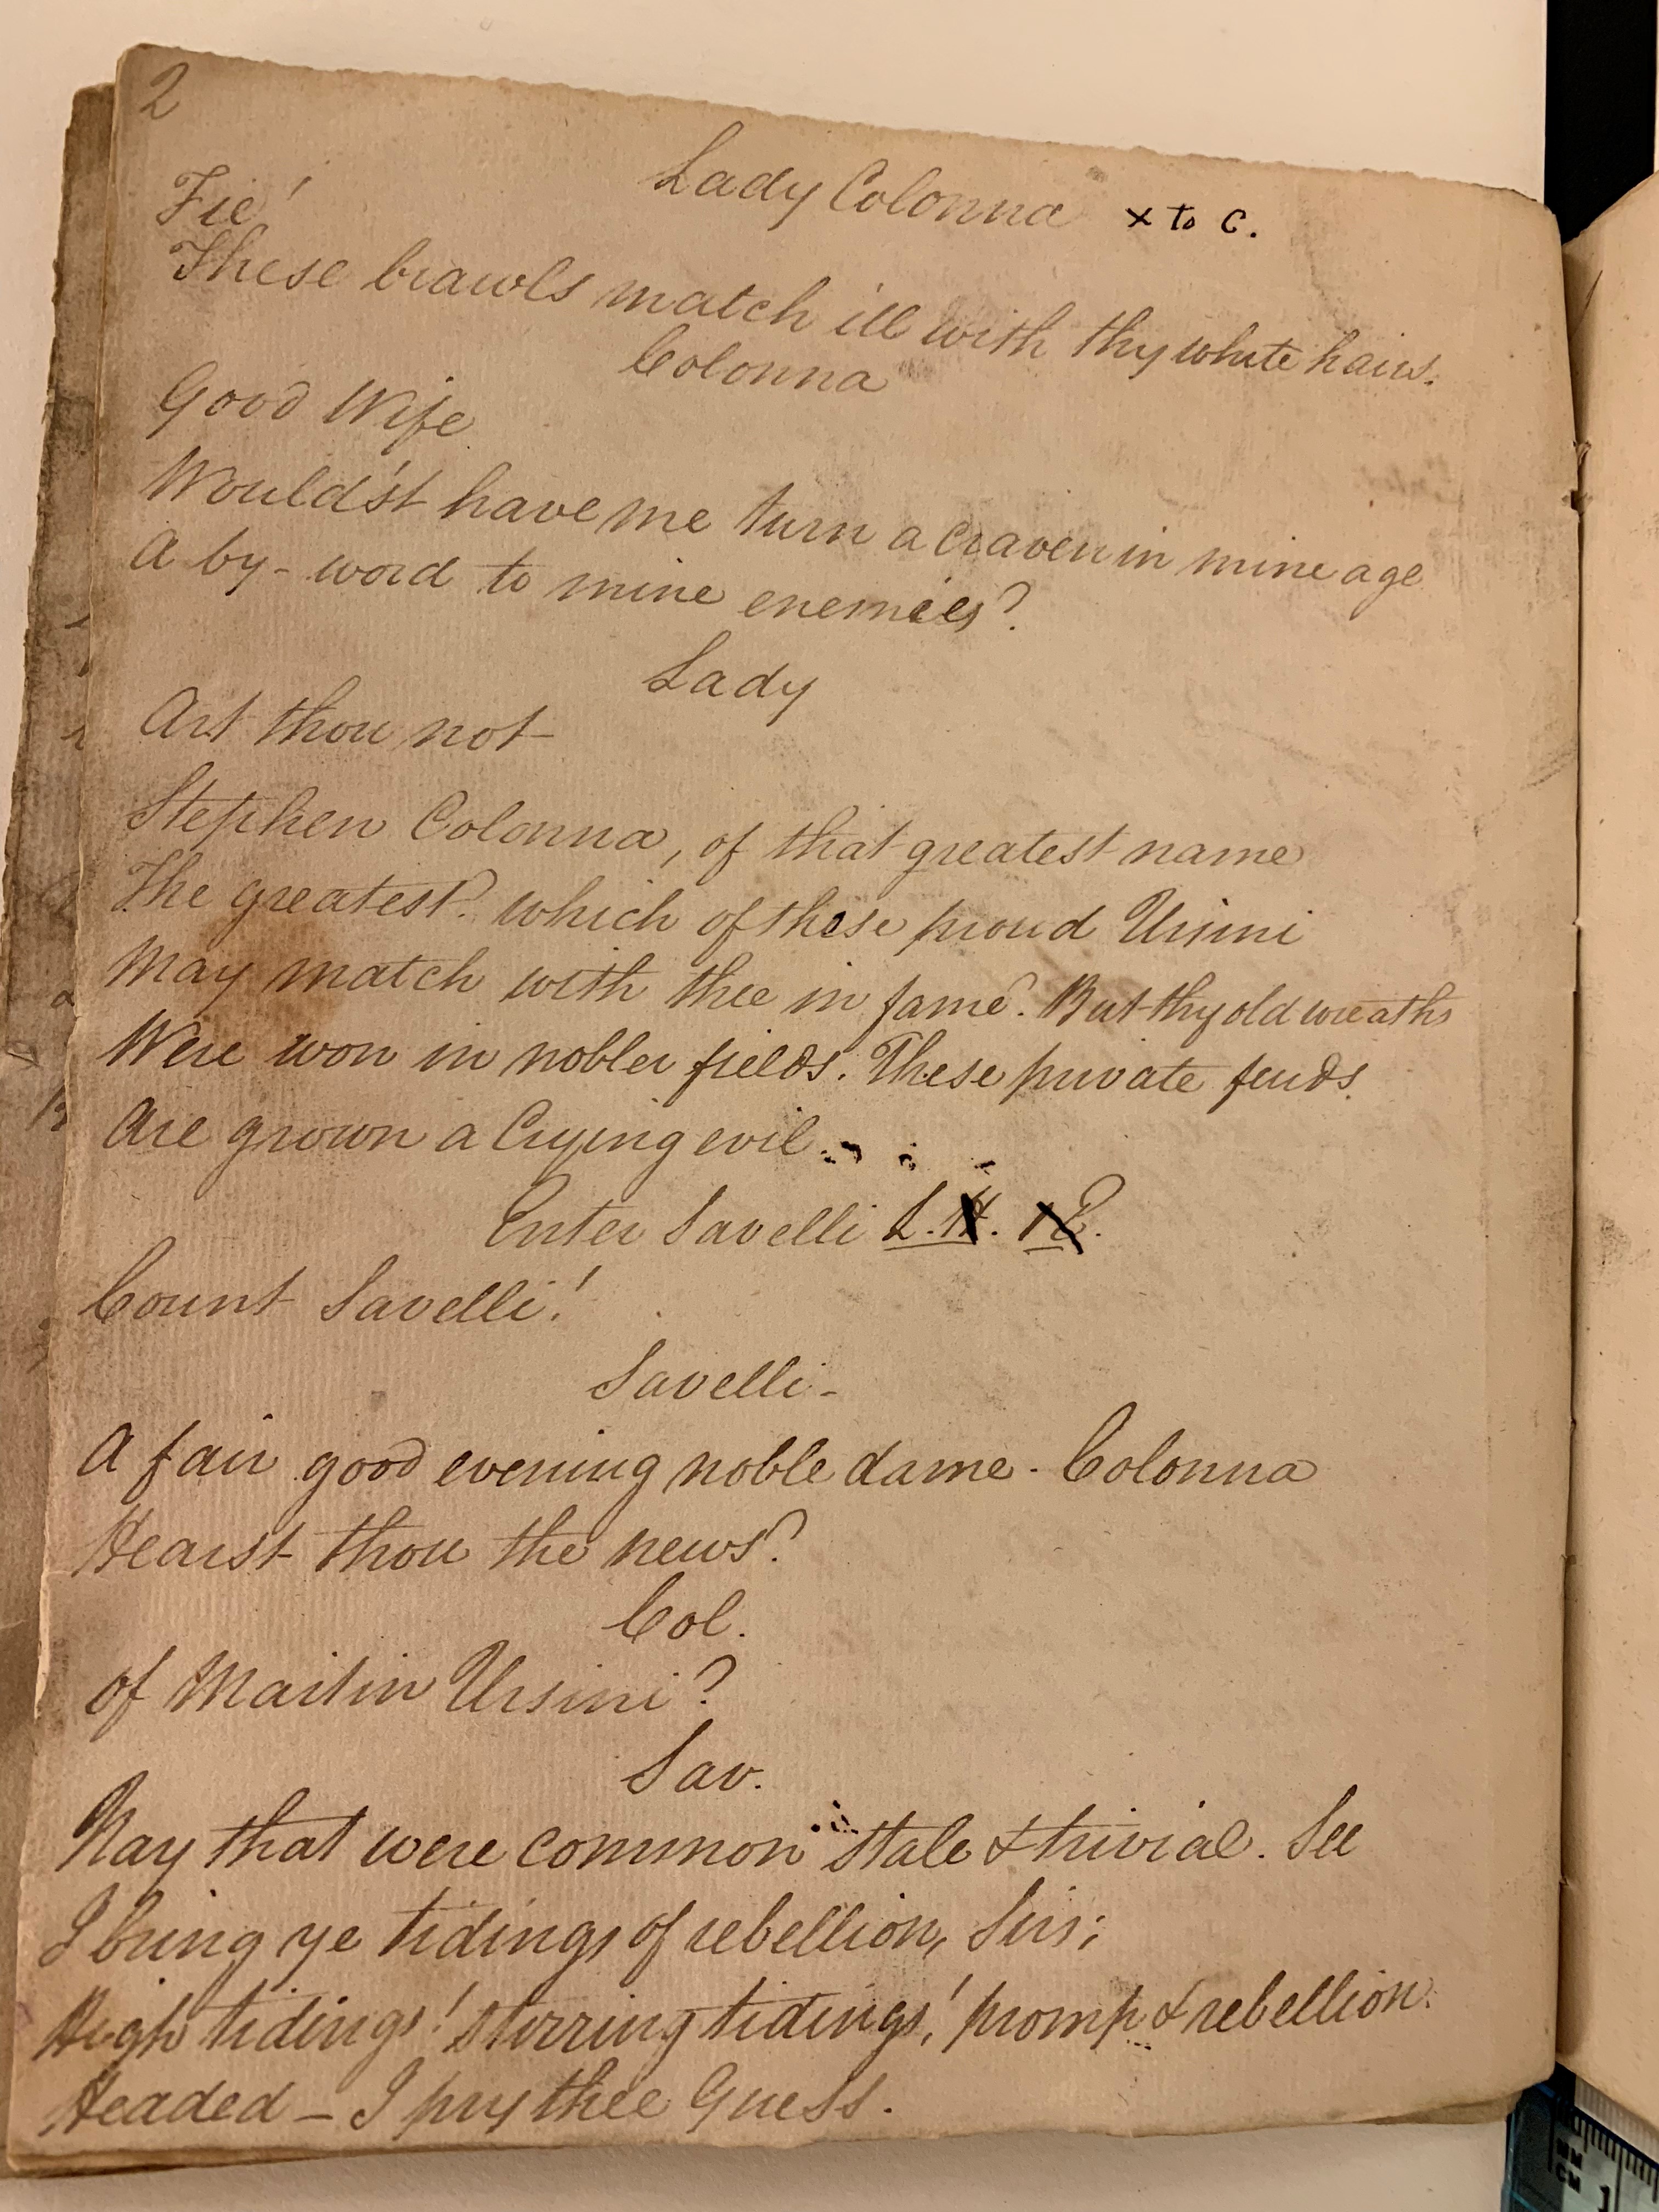 2
Lady Colonna x to C.
Fie!
These brawls match ill with thy white hairs.
Colonna
Good Wife
Would'st have me turn a Craven in mine age
A by-word to mine enemies?
Lady
Art thou not
Stephen Colonna, of that greatest name
The greatest? which of these proud Ursini
May match with thee in fame? But thy old wreaths
Were won in nobler fields. These private feuds
Are grown a Crying evil.
Enter Savelli L.H. 1E.
Count Savelli!
Savelli-
A fair good evening noble dame. Colonna
Hearst thou the news?
Col.
of Martin Ursini?
Sav.
Nay that were common stale & trivial. See
I bring ye tidings of rebellion, Sirs;
High tidings! stirring tidings! promp & rebellion.
Headed – I pry thee Guess.